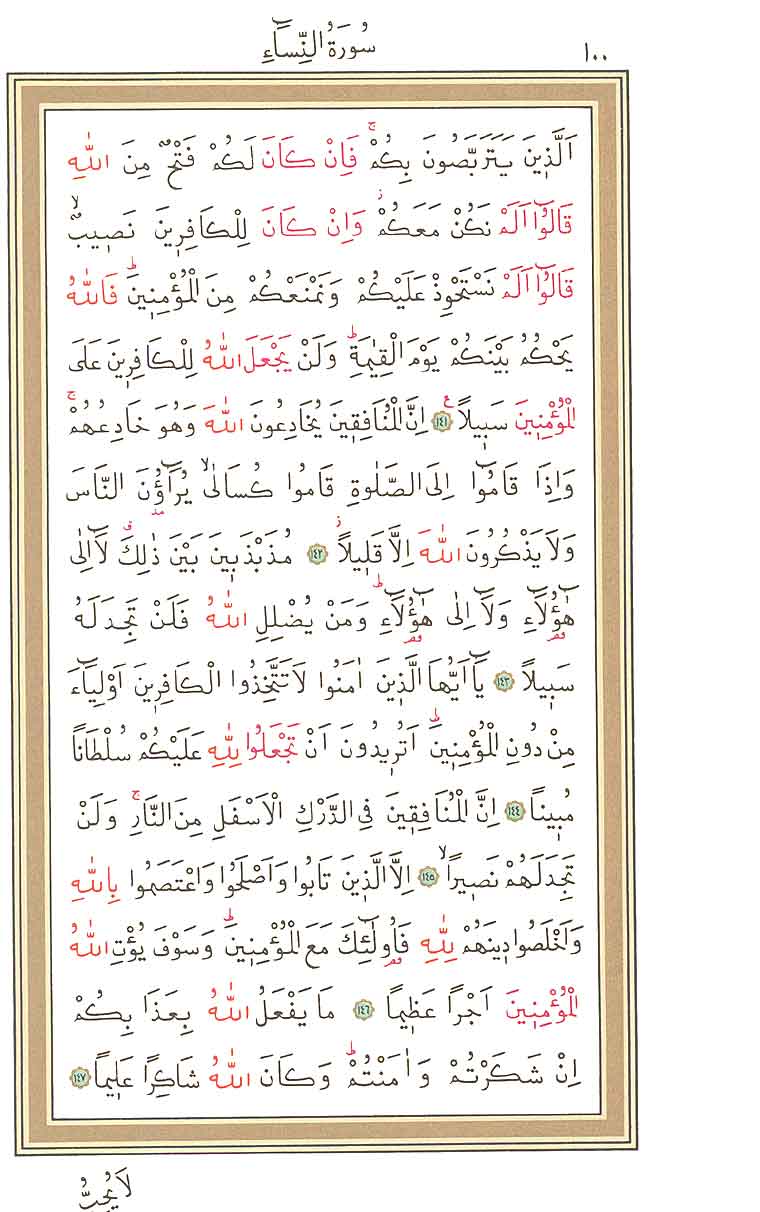 ١٠٠
سُورَةُ النِّسَٓاءِ
اَلَّذ۪ينَ يَتَرَبَّصُونَ بِكُمْۚ فَاِنْ كَانَ لَكُمْ فَتْحٌ مِنَ اللّٰهِ
قَالُٓوا اَلَمْ نَكُنْ مَعَكُمْۘ وَاِنْ كَانَ لِلْكَافِر۪ينَ نَص۪يبٌۙ
قَالُٓوا اَلَمْ نَسْتَحْوِذْ عَلَيْكُمْ وَنَمْنَعْكُمْ مِنَ الْمُؤْمِن۪ينَۜ فَاللّٰهُ
يَحْكُمُ بَيْنَكُمْ يَوْمَ الْقِيٰمَةِۜ وَلَنْ يَجْعَلَ اللّٰهُ لِلْكَافِر۪ينَ عَلَى
الْمُؤْمِن۪ينَ سَب۪يلاًۚ ع ﴿١٤١﴾ اِنَّ الْمُنَافِق۪ينَ يُخَادِعُونَ اللّٰهَ وَهُوَ خَادِعُهُمْۚ
وَاِذَا قَامُٓوا اِلَى الصَّلٰوةِ قَامُوا كُسَالٰىۙ يُرَٓاؤُ۫نَ النَّاسَ
وَلَا يَذْكُرُونَ اللّٰهَ اِلَّا قَل۪يلاًۘ ﴿١٤٢﴾ مُذَبْذَب۪ينَ بَيْنَ ذٰلِكَۗ لَٓا اِلٰى
هٰٓؤُ۬لَٓاءِ وَلَٓا اِلٰى هٰٓؤُ۬لَٓاءِۜ وَمَنْ يُضْلِلِ اللّٰهُ فَلَنْ تَجِدَ لَهُ
سَب۪يلاً ﴿١٤٣﴾ يَٓا اَيُّهَا الَّذ۪ينَ اٰمَنُوا لَا تَتَّخِذُوا الْكَافِر۪ينَ اَوْلِيَٓاءَ
مِنْ دُونِ الْمُؤْمِن۪ينَۜ اَتُر۪يدُونَ اَنْ تَجْعَلُوا لِلّٰهِ عَلَيْكُمْ سُلْطَاناً
مُب۪يناً ﴿١٤٤﴾ اِنَّ الْمُنَافِق۪ينَ فِي الدَّرْكِ الْاَسْفَلِ مِنَ النَّارِۚ وَلَنْ
تَجِدَ لَهُمْ نَص۪يراًۙ ﴿١٤٥﴾ اِلَّا الَّذ۪ينَ تَابُوا وَاَصْلَحُوا وَاعْتَصَمُوا بِاللّٰهِ
وَاَخْلَصُوا د۪ينَهُمْ لِلّٰهِ فَاُو۬لٰٓئِكَ مَعَ الْمُؤْمِن۪ينَۜ وَسَوْفَ يُؤْتِ اللّٰهُ
الْمُؤْمِن۪ينَ اَجْراً عَظ۪يماً ﴿١٤٦﴾ مَا يَفْعَلُ اللّٰهُ بِعَذَابِكُمْ
اِنْ شَكَرْتُمْ وَاٰمَنْتُمْۜ وَكَانَ اللّٰهُ شَاكِراً عَل۪يماً ﴿١٤٧﴾
لَا يُحِبُّ